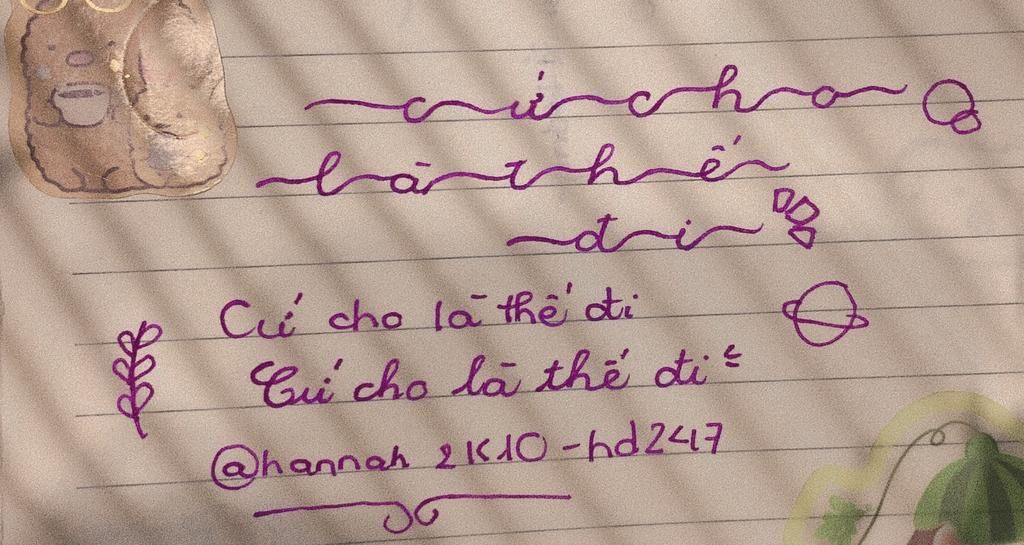 cứ cho
là thế
đi
Cứ cho là thế đi
Cứ cho là thế đi
@hannah 2K10 - hd247